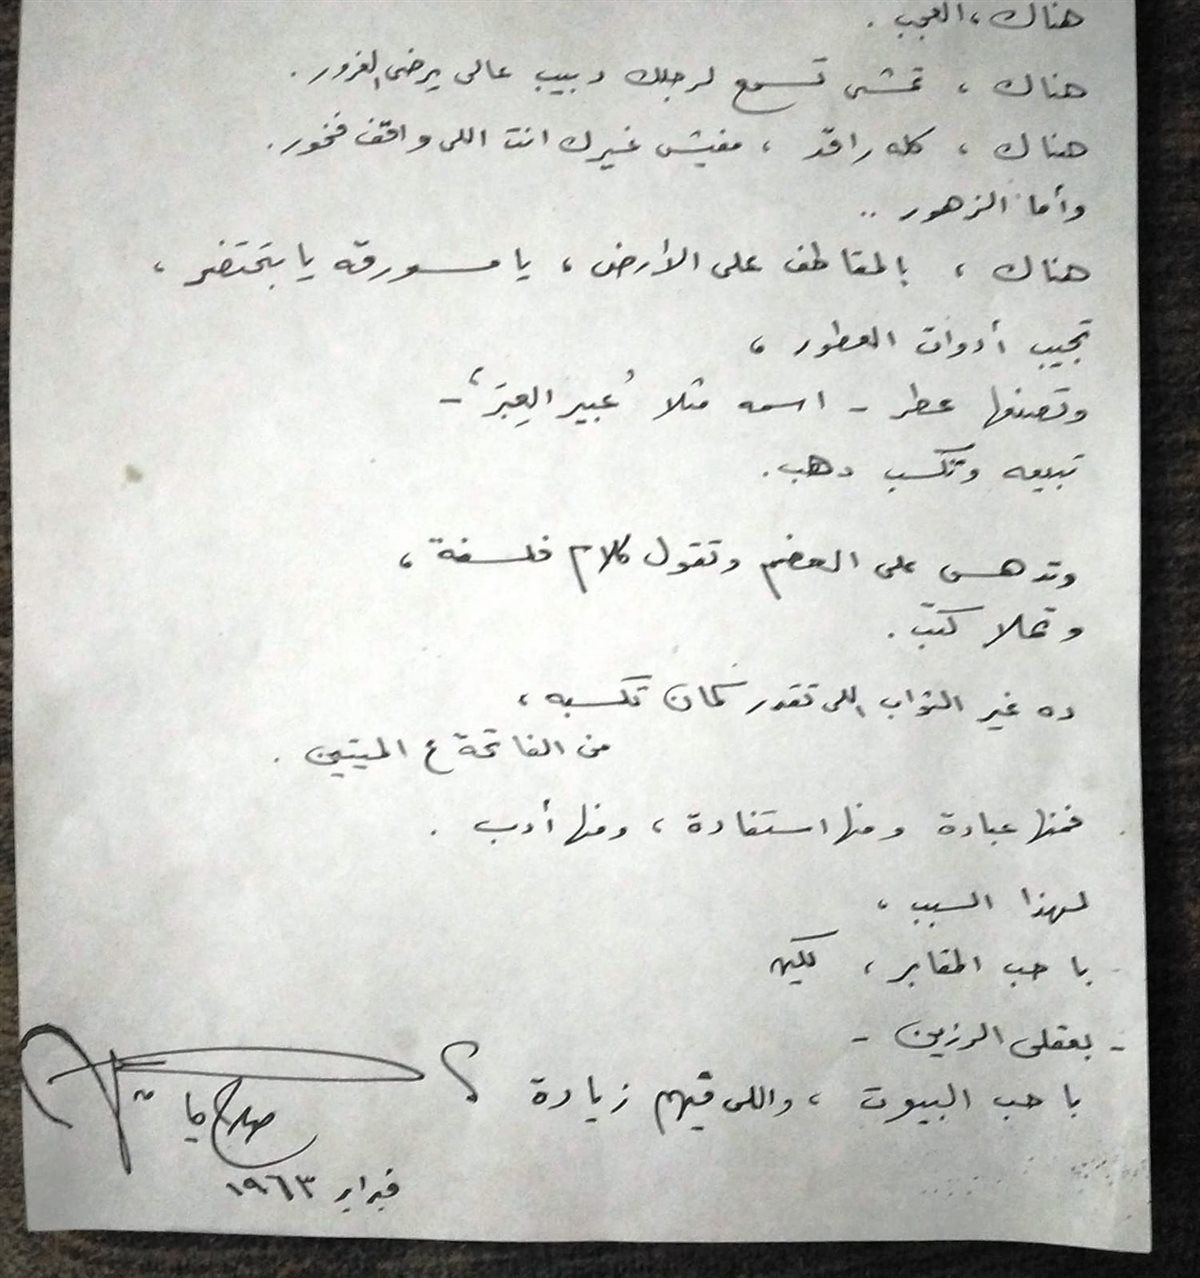 هناك، العجب .
هناك ، تمشى تسمع لرجلك دبيب عالى يرضى الغرور .
هناك ، كله راقد ، مفيش غيرك انت اللى واقف فخور .
وأما الزهور ..
هناك ، بالمقاطف على الأرض ، يا مسورقه يا بتحتضر ،
تجيب أدوات العطور ،
وتصنعها عطر - اسمه مثلا ’عبير العِبَر‘ -
تبيعه وتكسب دهب .
وتدهس على العضم وتقول كلام فلسفة ،
وتملا كتب .
ده غير الثواب اللى تقدر كمان تكسبه ،
من الفاتحة ع الميتين .
فمنها عبادة ومنها استفادة ، ومنها أدب .
لهذا السبب ،
با حب المقابر ، لكين
- بعقلى الرزين -
با حب البيوت ، واللى فيهم زيادة ؟
صلاح
فبراير ١٩٦٣